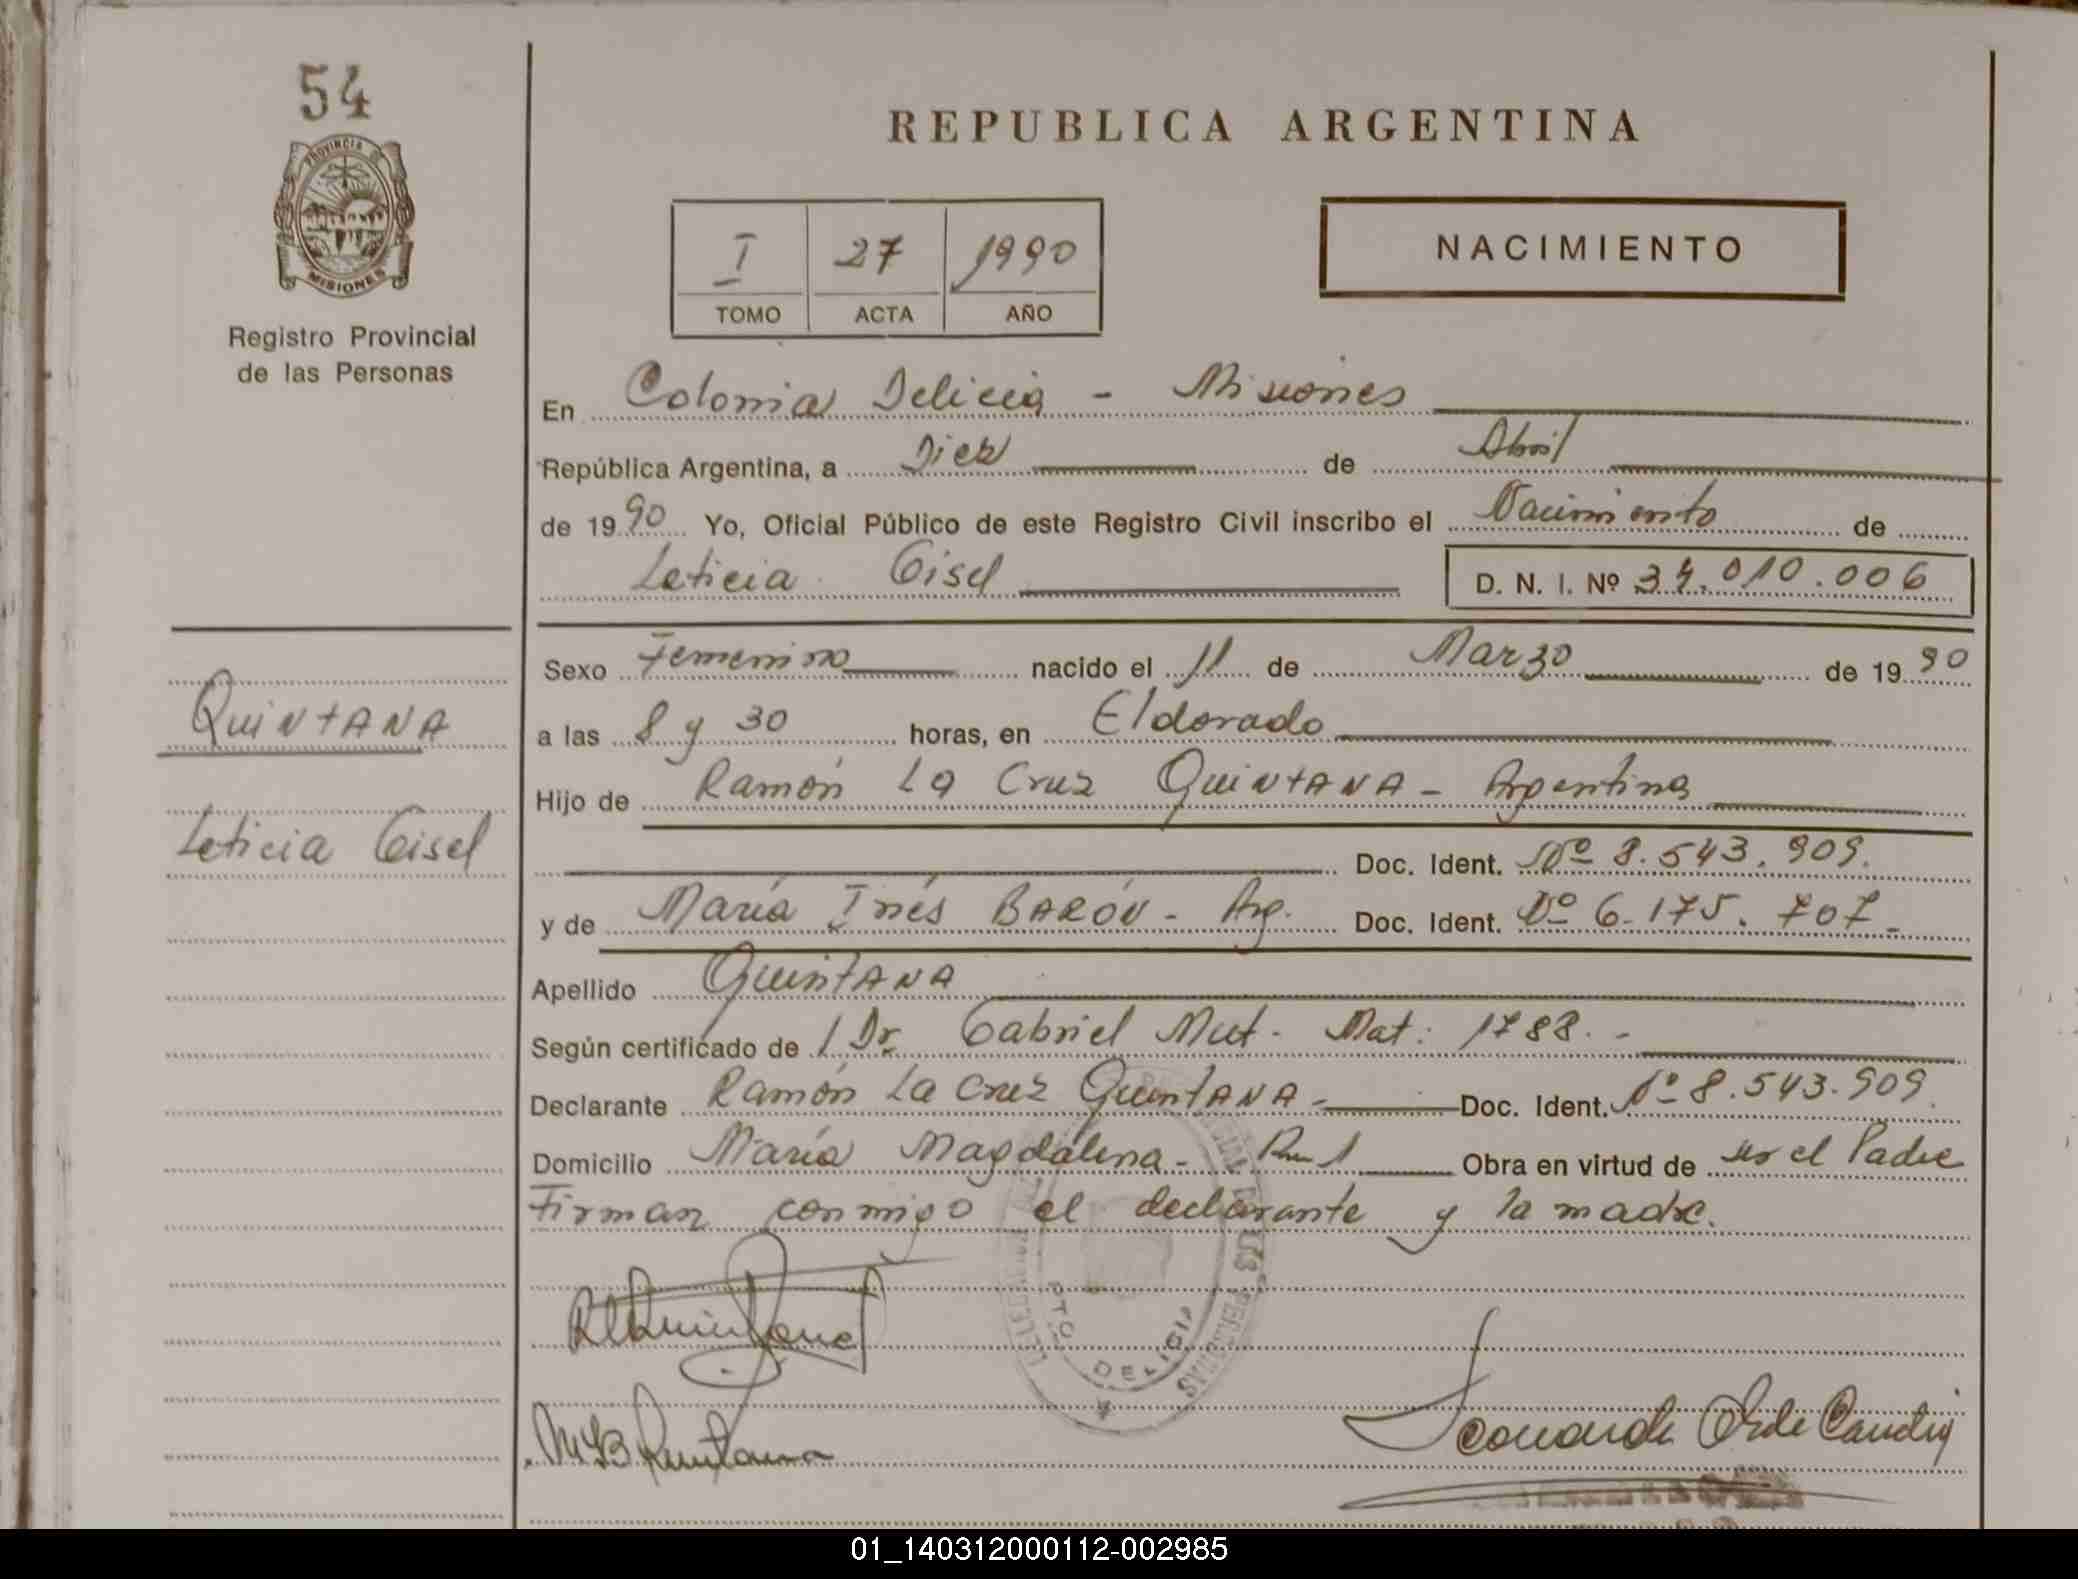 54
PROVINCIA DE
MISIONES
Registro Provincial
de las Personas
QUINTANA
Leticia Gisel
REPUBLICA ARGENTINA
I 27 1990
TOMO ACTA AÑO
NACIMIENTO
En Colonia Delicia - Misiones
República Argentina, a Diez de Abril
de 1990 Yo, Oficial Público de este Registro Civil inscribo el Nacimiento de
Leticia Gisel D. N. I. Nº 34.010.006
Sexo Femenino nacido el 11 de Marzo de 1990
a las 8 y 30 horas, en Eldorado
Hijo de Ramón La Cruz QUINTANA - Argentina
Doc. Ident. Nº 8.543.909.
y de María Inés BARÓN - Arg. Doc. Ident. Nº 6.175.707.-
Apellido QUINTANA
Según certificado de l Dr. Gabriel Mut. Mat: 1788.-
Declarante Ramón La Cruz QUINTANA - Doc. Ident. Nº 8.543.909.
Domicilio María Magdalena - Obra en virtud de ser el Padre
Firman conmigo el declarante y la madre.
PTO. DELICIA
DE LAS PERSONAS
01_140312000112-002985